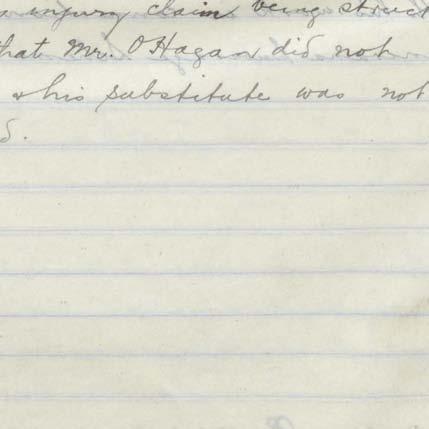 injury claim being struck
that Mr. O'Hagan did not
& his substitute was not
d.